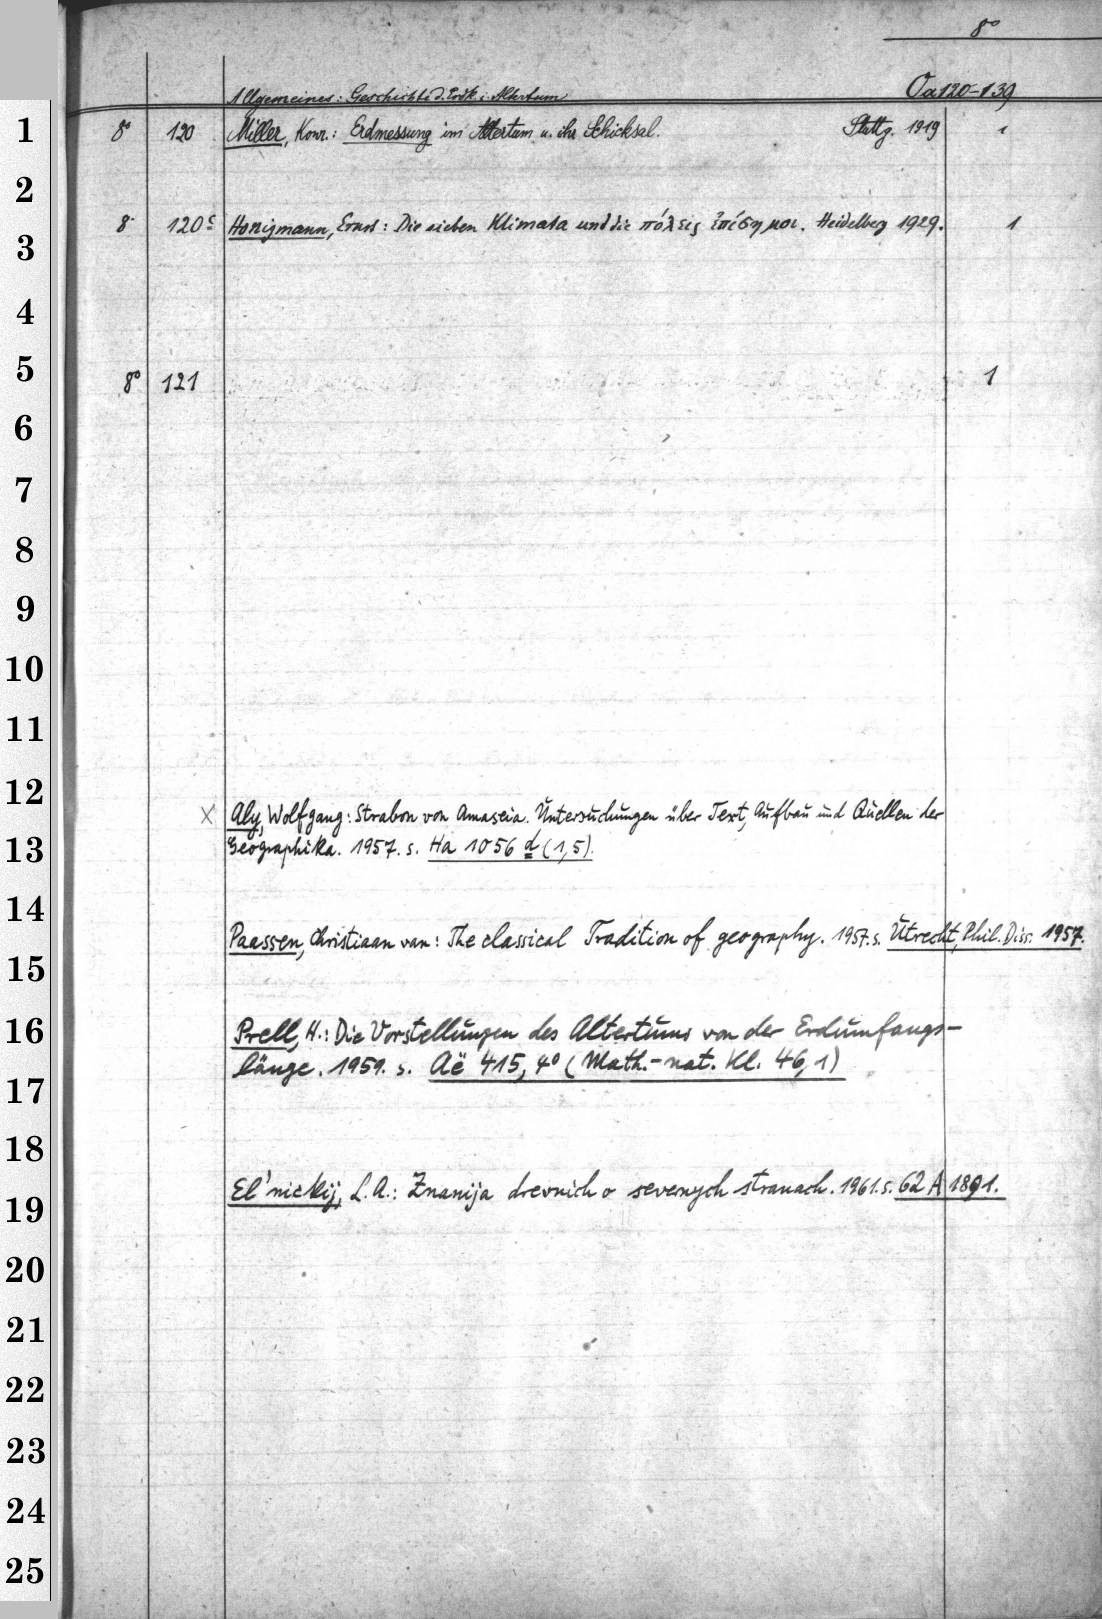 8°
Allgemeines: Geschichte d. Erdk. i. Altertum Oa 120-139
1 8° 120 Miller, Konr.: Erdmessung im Altertum u. ihr Schicksal. Stuttg. 1919 1
2
8° 120 c Honigmann, Ernst: Die sieben Klimata und die πόλεις ἐπίσημοι. Heidelberg 1929. 1
3
4
5 8° 121 1
6
7
8
9
10
11
12 X Aly, Wolfgang: Strabon von Amaseia. Untersuchungen über Text, Aufbau und Quellen der
13 Geographika. 1957. s. Ha 1056 d (1,5).
14
Paassen, Christiaan van: The classical Tradition of geography. 1957. s. Utrecht, Phil. Diss. 1957.
15
16 Prell, H.: Die Vorstellungen des Altertums von der Erdumfangs-
länge. 1959. s. Aë 415, 4° (Math.-nat. Kl. 46,1)
17
18
El'nickij, L. A.: Znanija drevnich o severnych stranach. 1961. s. 62 A 1891.
19
20
21
22
23
24
25